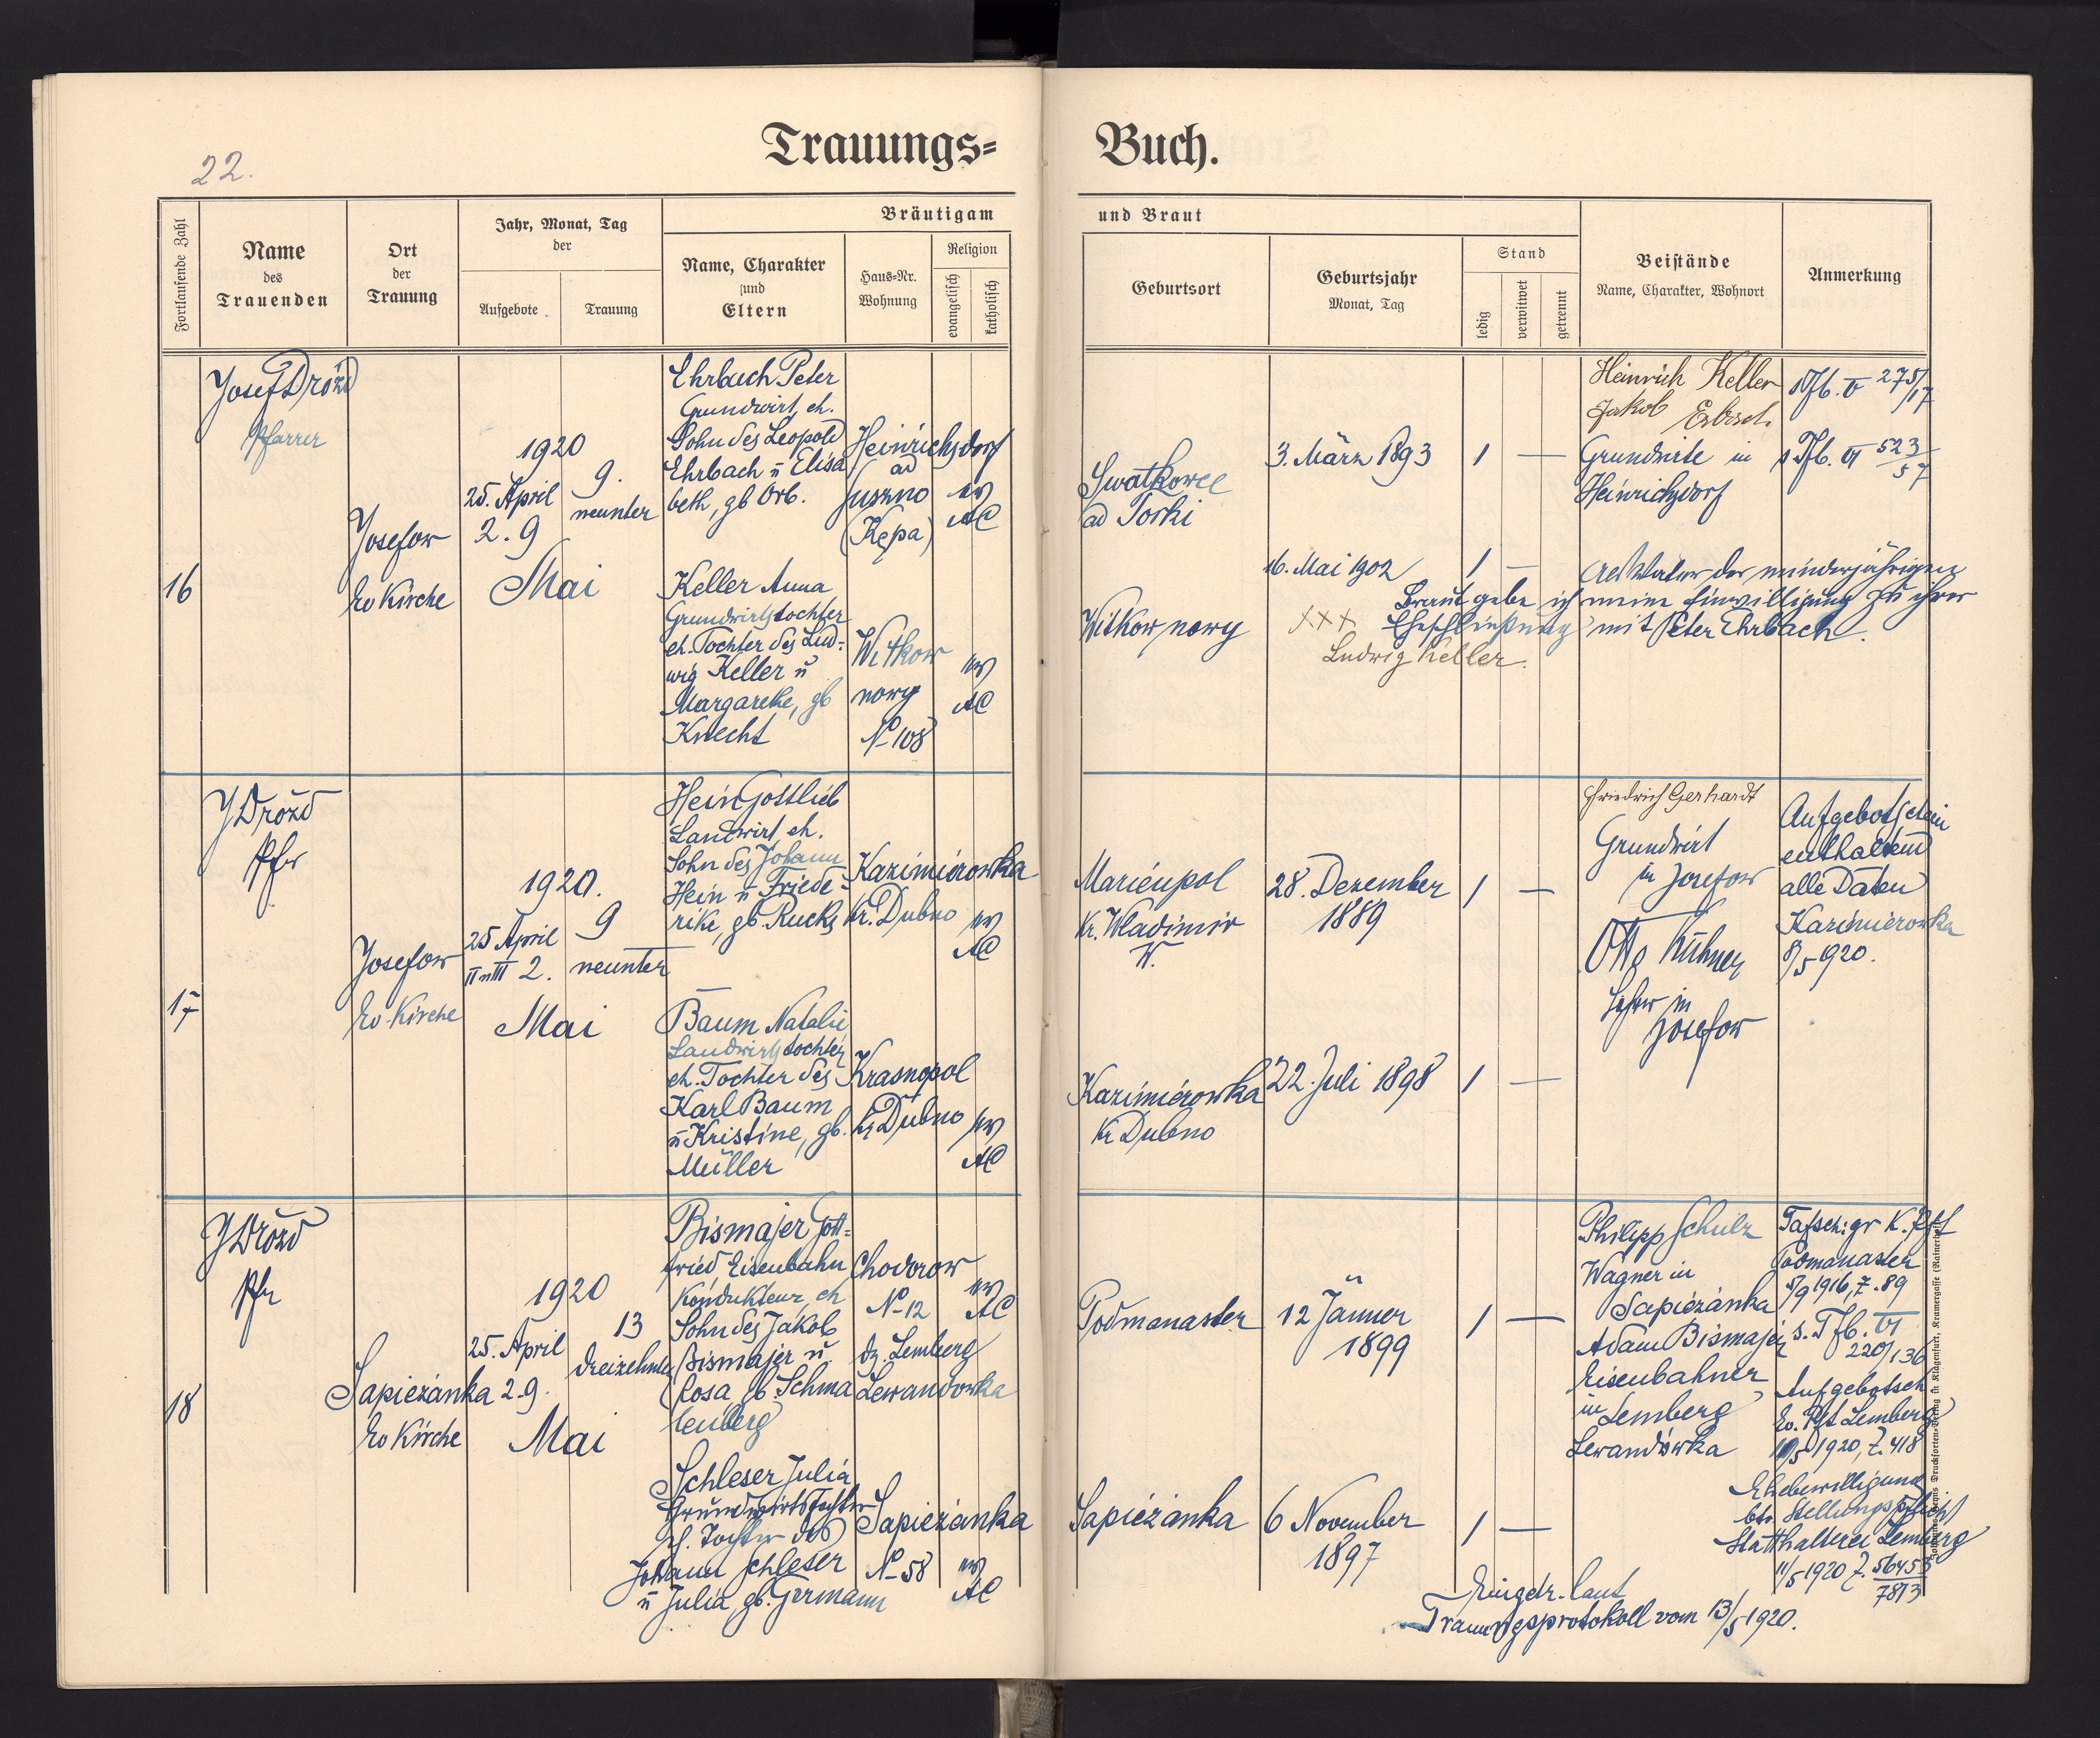 22.
Trauungs-
Buch.
Fortlaufende Zahl
Name
des
Trauenden
Ort
der
Trauung
Jahr, Monat, Tag
der
Aufgebote
Trauung
Bräutigam
Name, Charakter
und
Eltern
Haus-Nr.
Wohnung
Religion
evangelisch
katholisch
und Braut
Geburtsort
Geburtsjahr
Monat, Tag
Stand
ledig
verwitwet
getrennt
Beistände
Name, Charakter, Wohnort
Anmerkung
16
Josef Drózd
Pfarrer
Josefow
Ev Kirche
1920
25. April
2. 9
9.
neunter
Mai
Ehrbach Peter
Grundwirt, eh.
Sohn des Leopold
Ehrbach u Elisa
beth, gb Orb.
Heinrichsdorf
ad
Suszno
(Kępa)
ev
AC
Keller Anna
Grundwirtstochter
eh. Tochter des Lud-
wig Keller u
Margarethe, gb
Knecht
Witkow
nowy
No 108
ev
AC
Swatkowce
ad Torki
3. März 1893
1 —
Witkow nowy
16. Mai 1902
1 —
Heinrich Keller
Jakob
Grundwirte in
Heinrichsdorf
275/17
s Tfb. VI 523/57
Als Vater der minderjährigen
Braut gebe ich meine Einwilligung zu ihrer
××× Eheschließung mit Peter Ehrbach.
Ludwig Keller.
17
J Drózd
Pfr
Josefow
Ev. Kirche
1920.
25 April
II u III 2.
9
neunter
Mai
Hein Gottlieb
Landwirt eh.
Sohn des Johann
Hein u Friede-
rike, gb. Rucks
Kazimierowka
Kr. Dubno
ev
AC
Baum Natalie
Landwirtstochter
eh. Tochter des
Karl Baum
u Kristine, gb.
Müller
Krasnopol
Kr Dubno
ev
AC
Marienpol
Kr. Wladimir
W.
28. Dezember
1889
1 —
Kazimierowka
Kr Dubno
22. Juli 1898
1 —
Friedrich Gerhardt
Grundwirt
in Josefow
Otto Kühner
Lehrer in
Josefow
Aufgebotschein
enthaltend
alle Daten
Kazimierowka
8/5 920.
18
J Drózd
Pfr
Sapiezanka
Ev Kirche
1920
25. April
2. 9.
13
dreizehnter
Mai
Bismajer Gott-
fried Eisenbahn
Kondukteur, eh
Sohn des Jakob
Bismajer u.
Rosa gb Schma
lenberg
Chodorow
No 12
dz. Lemberg
Lewandowka
ev
AC
Schleser Julia
Grundwirtstochter
eh. Tochter des
Johann Schleser
u Julia, gb. Germann
Sapiezanka
No 58
ev
AC
Podmanaster
12 Jänner
1899
1 —
Sapiezanka
6 November
1897
1 —
Philipp Schulz
Wagner in
Sapiezanka
Adam Bismajer
Eisenbahner
in Lemberg
Lewandówka
Tafsch: gr K. Pft
Podmanaster
5/9 1916, Z. 89
s. Tfb. VI
220/136
Aufgebotsch
Ev. Pft Lemberg
10/5 1920, Z. 418
Ehebewilligung
btr Stellungspflicht
Statthalterei Lemberg
11/5 1920 Z. 56455/7813
Eingetr. laut
Trauungsprotokoll vom 13/5 1920.